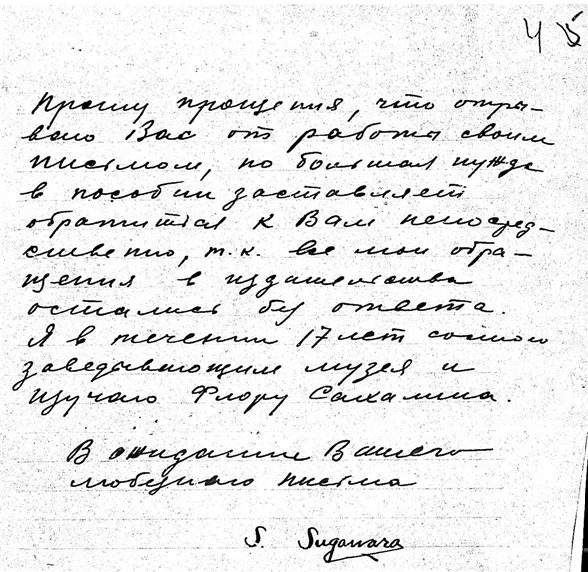 4 5
Прошу прощения, что отры-
ваю Вас от работы своим
письмом, но большая нужда
в пособии заставляет
обратиться к Вам непосред-
ственно, т.к. все мои обра-
щения в издательства
остались без ответа.
Я в течении 17 лет состою
заведывающим музея и
изучаю Флору Сахалина.
В ожидании Вашего
любезного письма
S. Sugawara